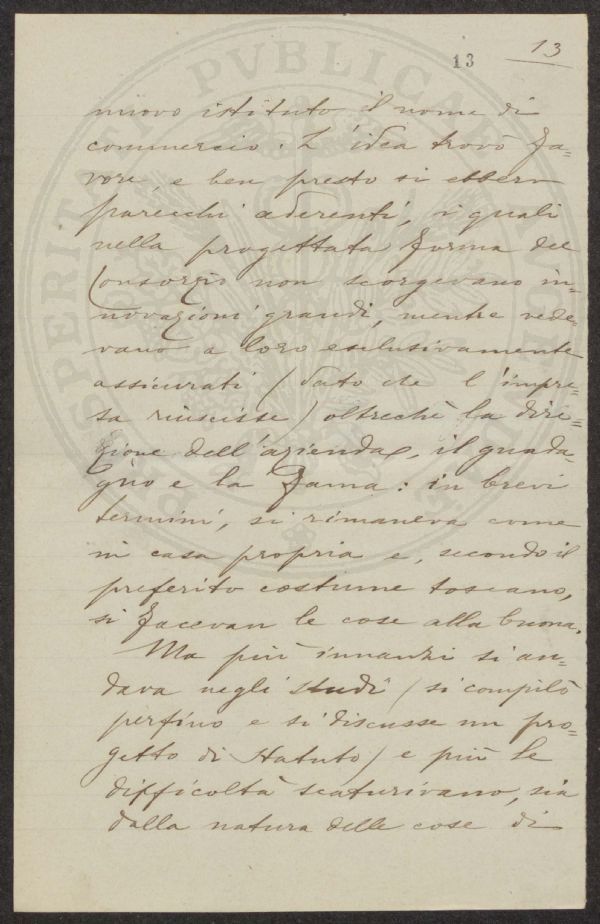 13
13
nuovo istituto il nome di
commercio. L'idea trovò fa=
vore, e ben presto si ebbero
parecchi aderenti, i quali
nella progettata forma del
Consorzio non scorgevano in=
novazioni grandi, mentre vede=
vano a loro esclusivamente
assicurati (dato che l'impre=
sa riuscisse) oltrechè la dire=
zione dell'azienda, il guada=
gno e la fama: in brevi
termini, si rimaneva come
in casa propria e, secondo il
preferito costume toscano,
si facevan le cose alla buona.
Ma più innanzi si an=
dava negli studi (si compilò
perfino e si discusse un pro=
getto di Statuto) e più le
difficoltà scaturivano, sia
dalla natura delle cose di
PROSPERITATI PVBLICAE AVGENDAE